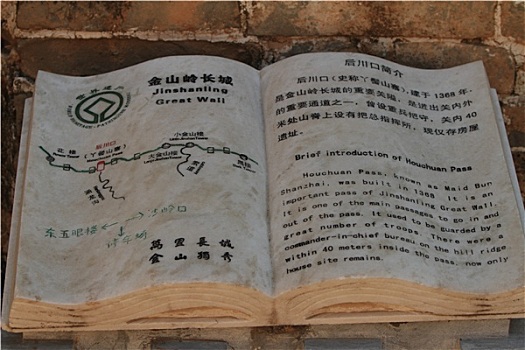 金山岭长城
Jinshanling
Great Wall
小金山楼
后川口
(丫髻山寨)
大金山楼
沙岭口
东五眼楼
停车场
萬里長城
金山獨秀
后川口简介
后川口(史称丫髻山寨),建于1368年,
是金山岭长城的重要关隘,是进出关内外
的重要通道之一,曾设重兵把守,关内40
米处山脊上设有把总指挥所,现仅存房屋
遗址。
Brief introduction of Houchuan Pass
Houchuan Pass, known as Maid Bun
Shanzhai, was built in 1368. It is an
important pass of Jinshanling Great Wall.
It is one of the main passages to go in and
out of the pass. It used to be guarded by a
great number of troops. There were a
commander-in-chief bureau on the hill ridge
within 40 meters inside the pass, now only
house site remains.